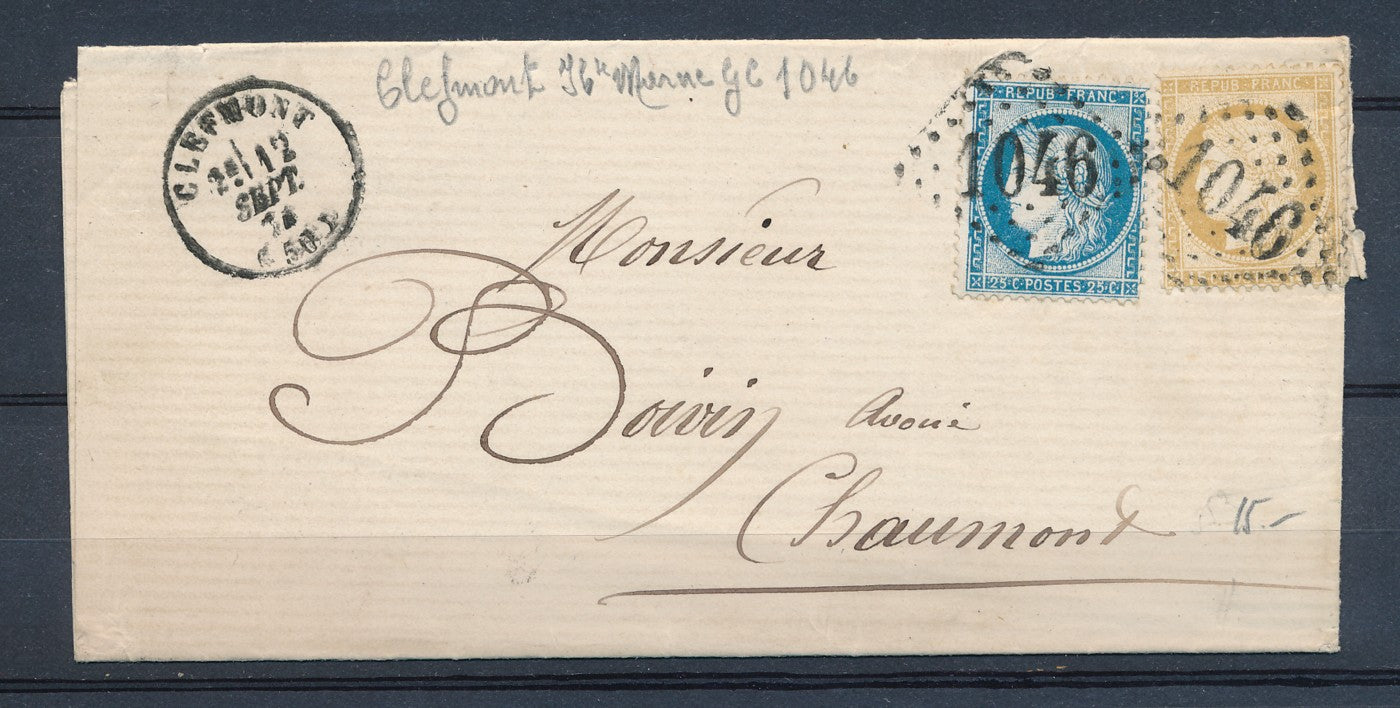 Clefmont Hte Marne GC 1046
CLEFMONT
2E 12
SEPT.
74
(50)
REPUB·FRANC·
1046
25·C·POSTES·25·C
REPUB·FRANC·
1046
Monsieur
Boivin Avoué
Chaumont
15.-